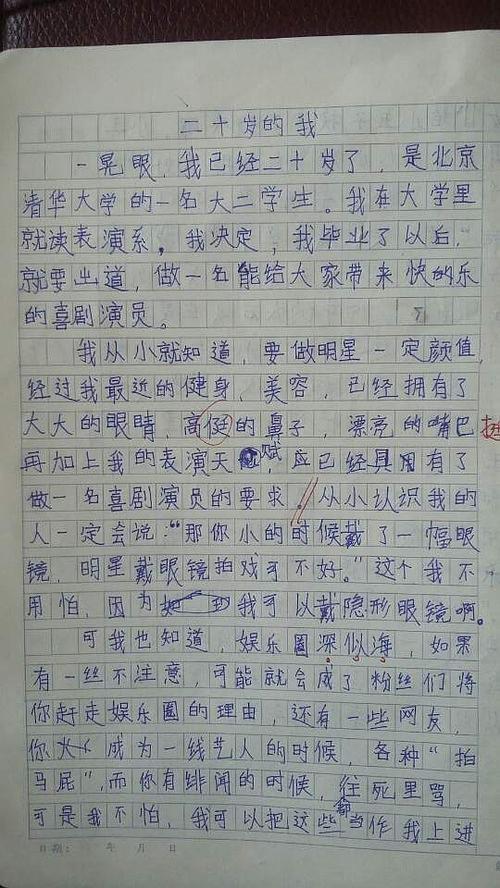 二十岁的我
一晃眼，我已经二十岁了，是北京
清华大学的一名大二学生。我在大学里
就读表演系。我决定，我毕业了以后，
就要出道，做一名能给大家带来快的乐
的喜剧演员。
我从小就知道，要做明星一定颜值，
经过我最近的健身，美容，已经拥有了
大大的眼睛，高侹的鼻子，漂亮的嘴巴 挺
再加上我的表演天赋，应已经具用有了
做一名喜剧演员的要求。从小认识我的
人一定会说：“那你小的时候戴了一幅眼
镜，明星戴眼镜拍戏可不好。”这个我不
用怕，因为我可以戴隐形眼镜啊。
可我也知道，娱乐圈深似海，如果
有一丝不注意，可能就会成了粉丝们将
你赶走娱乐圈的理由，还有一些网友，
你火成为一线艺人的时候，各种“拍
马屁”，而你有绯闻的时候，往死里骂，
可是我不怕，我可以把这些都当作我上进
日期： 年 月 日